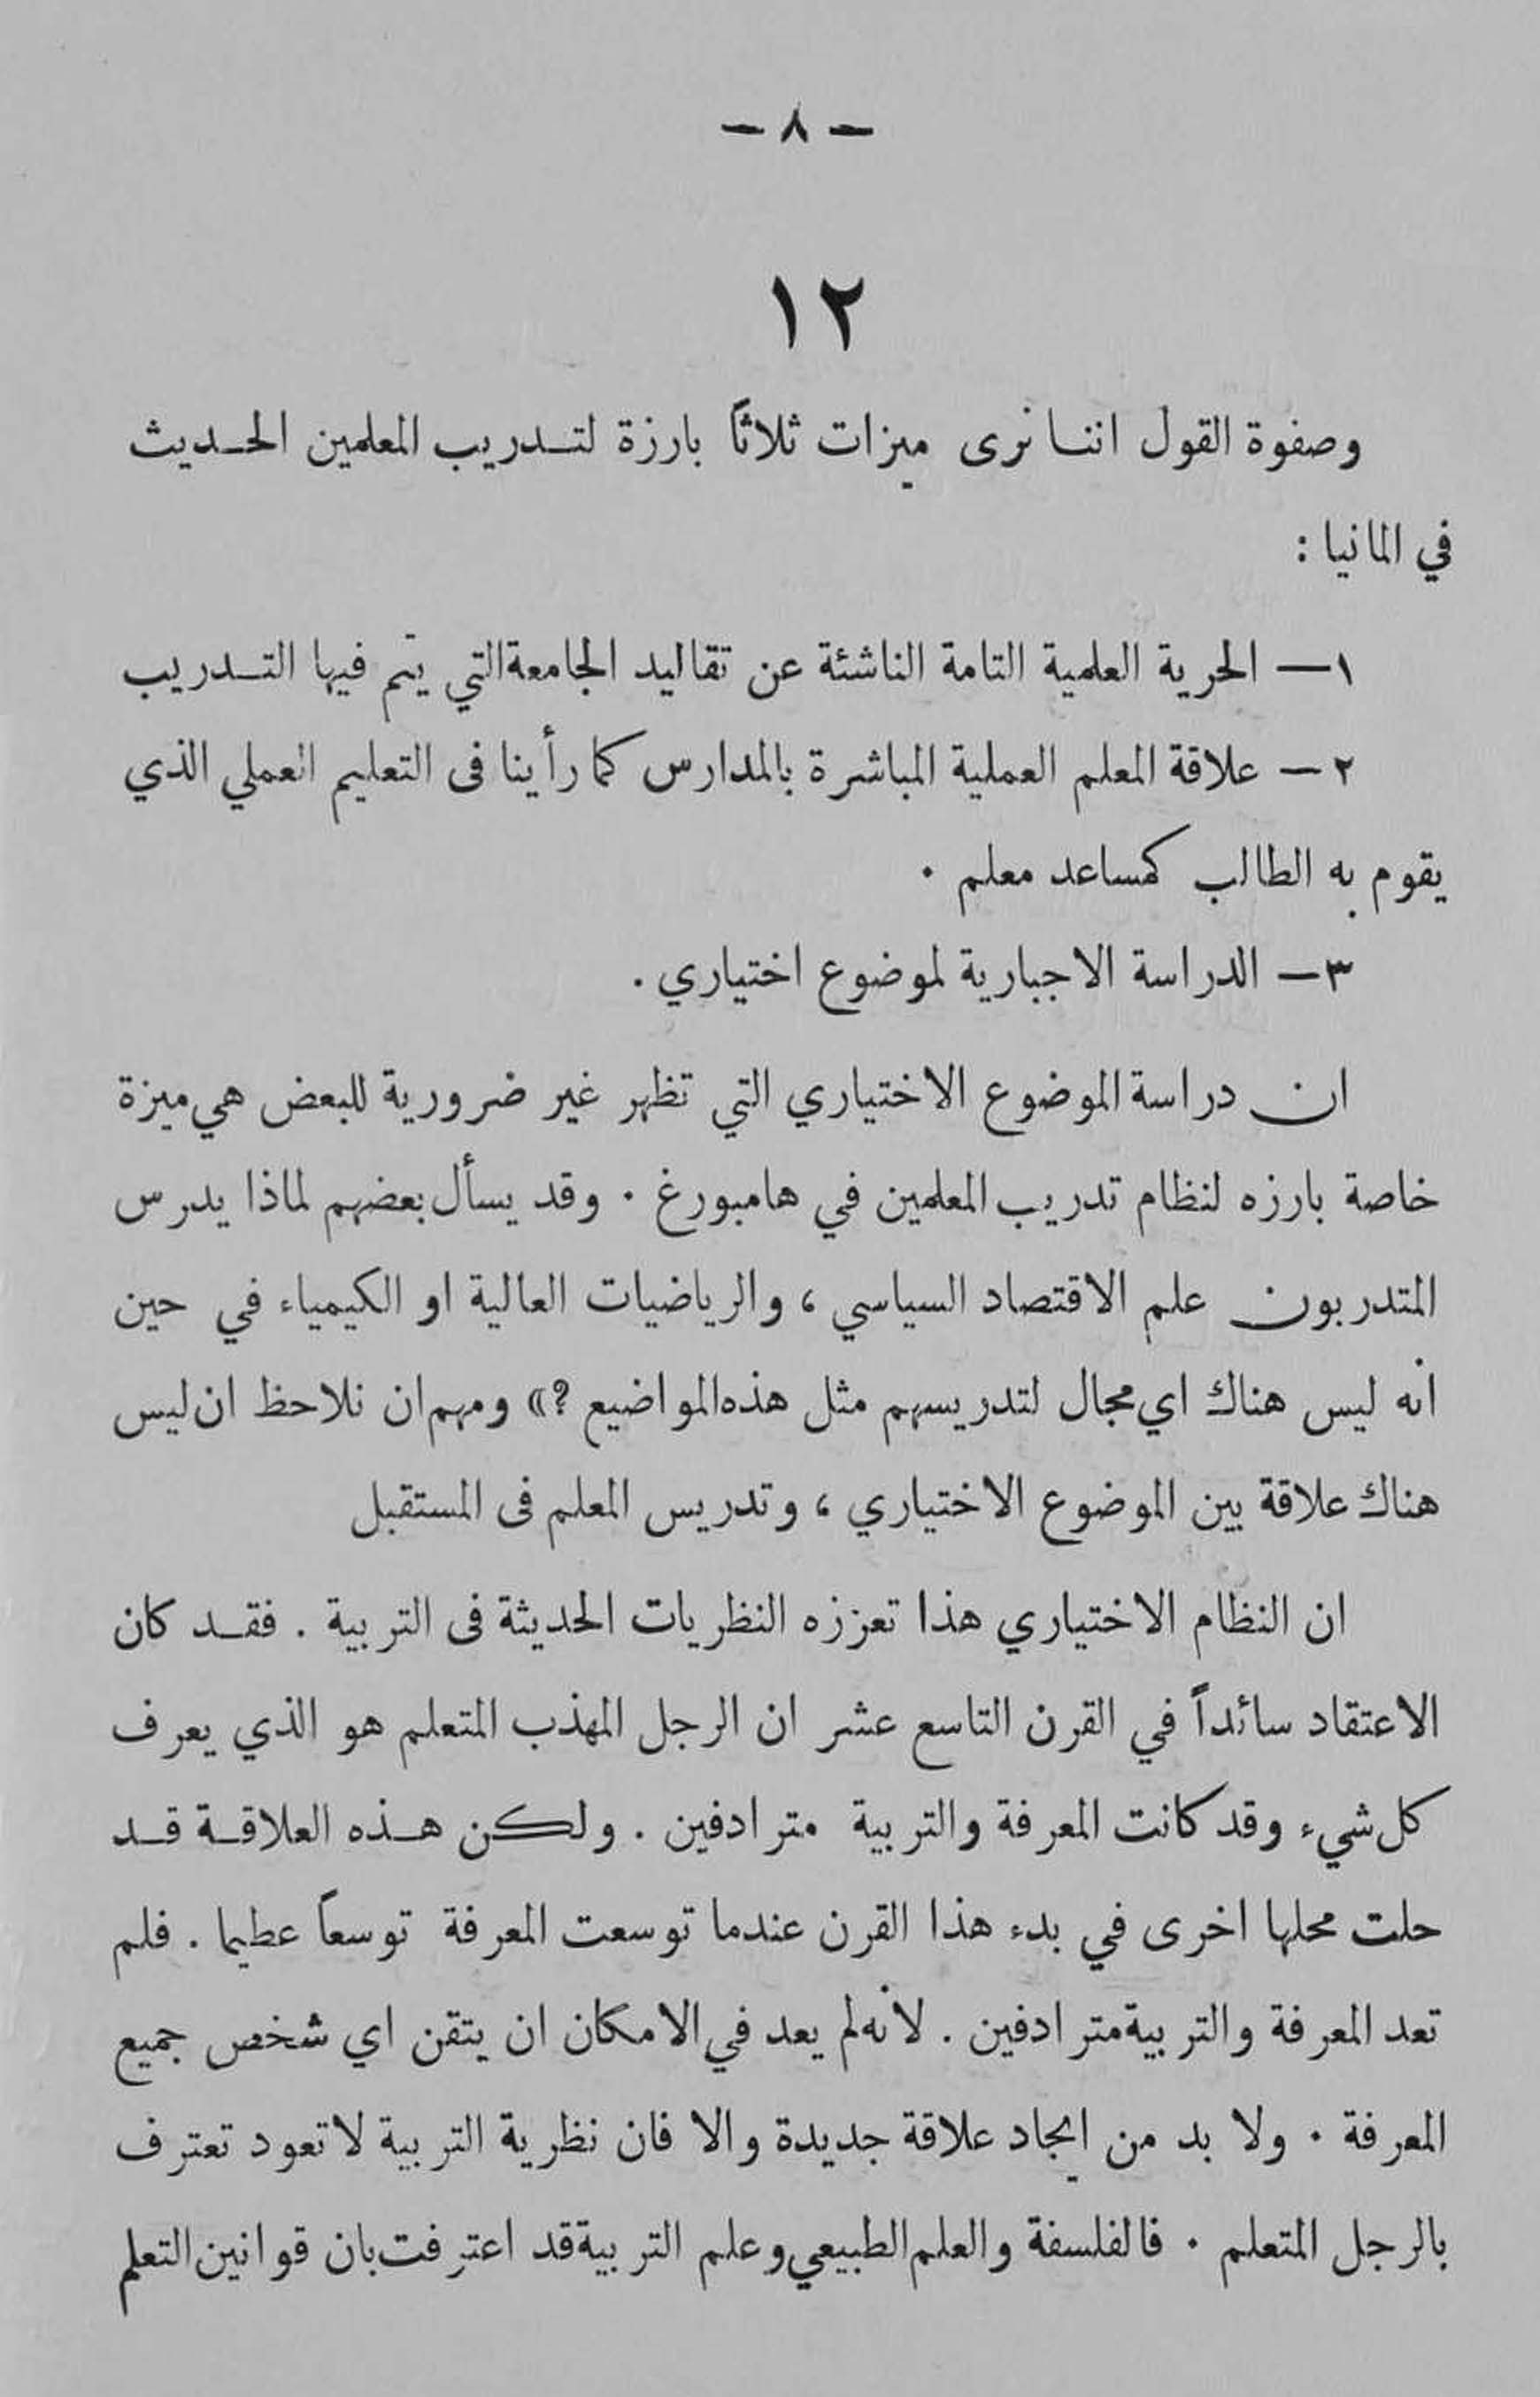 — ٨ —
١٢
وصفوة القول اننا نرى ميزات ثلاثاً بارزة لتدريب المعلمين الحديث
في المانيا :
١ — الحرية العلمية التامة الناشئة عن تقاليد الجامعة التي يتم فيها التدريب
٢ — علاقة المعلم العملية المباشرة بالمدارس كما رأينا فى التعليم العملي الذي
يقوم به الطالب كمساعد معلم ٠
٣ — الدراسة الاجبارية لموضوع اختياري .
ان دراسة الموضوع الاختياري التي تظهر غير ضرورية للبعض هي ميزة
خاصة بارزه لنظام تدريب المعلمين في هامبورغ ٠ وقد يسأل بعضهم لماذا يدرس
المتدربون علم الاقتصاد السياسي ، والرياضيات العالية او الكيمياء في حين
انه ليس هناك اي مجال لتدريسهم مثل هذه المواضيع ؟» ومهم ان نلاحظ ان ليس
هناك علاقة بين الموضوع الاختياري ، وتدريس المعلم فى المستقبل
ان النظام الاختياري هذا تعززه النظريات الحديثة فى التربية . فقد كان
الاعتقاد سائداً في القرن التاسع عشر ان الرجل المهذب المتعلم هو الذي يعرف
كل شيء وقد كانت المعرفة والتربية مترادفين . ولكن هذه العلاقة قد
حلت محلها اخرى في بدء هذا القرن عندما توسعت المعرفة توسعاً عطيما . فلم
تعد المعرفة والتربية مترادفين . لانه لم يعد في الامكان ان يتقن اي شخص جميع
المعرفة ٠ ولا بد من ايجاد علاقة جديدة والا فان نظرية التربية لا تعود تعترف
بالرجل المتعلم ٠ فالفلسفة والعلم الطبيعي وعلم التربية قد اعترفت بان قوانين التعلم